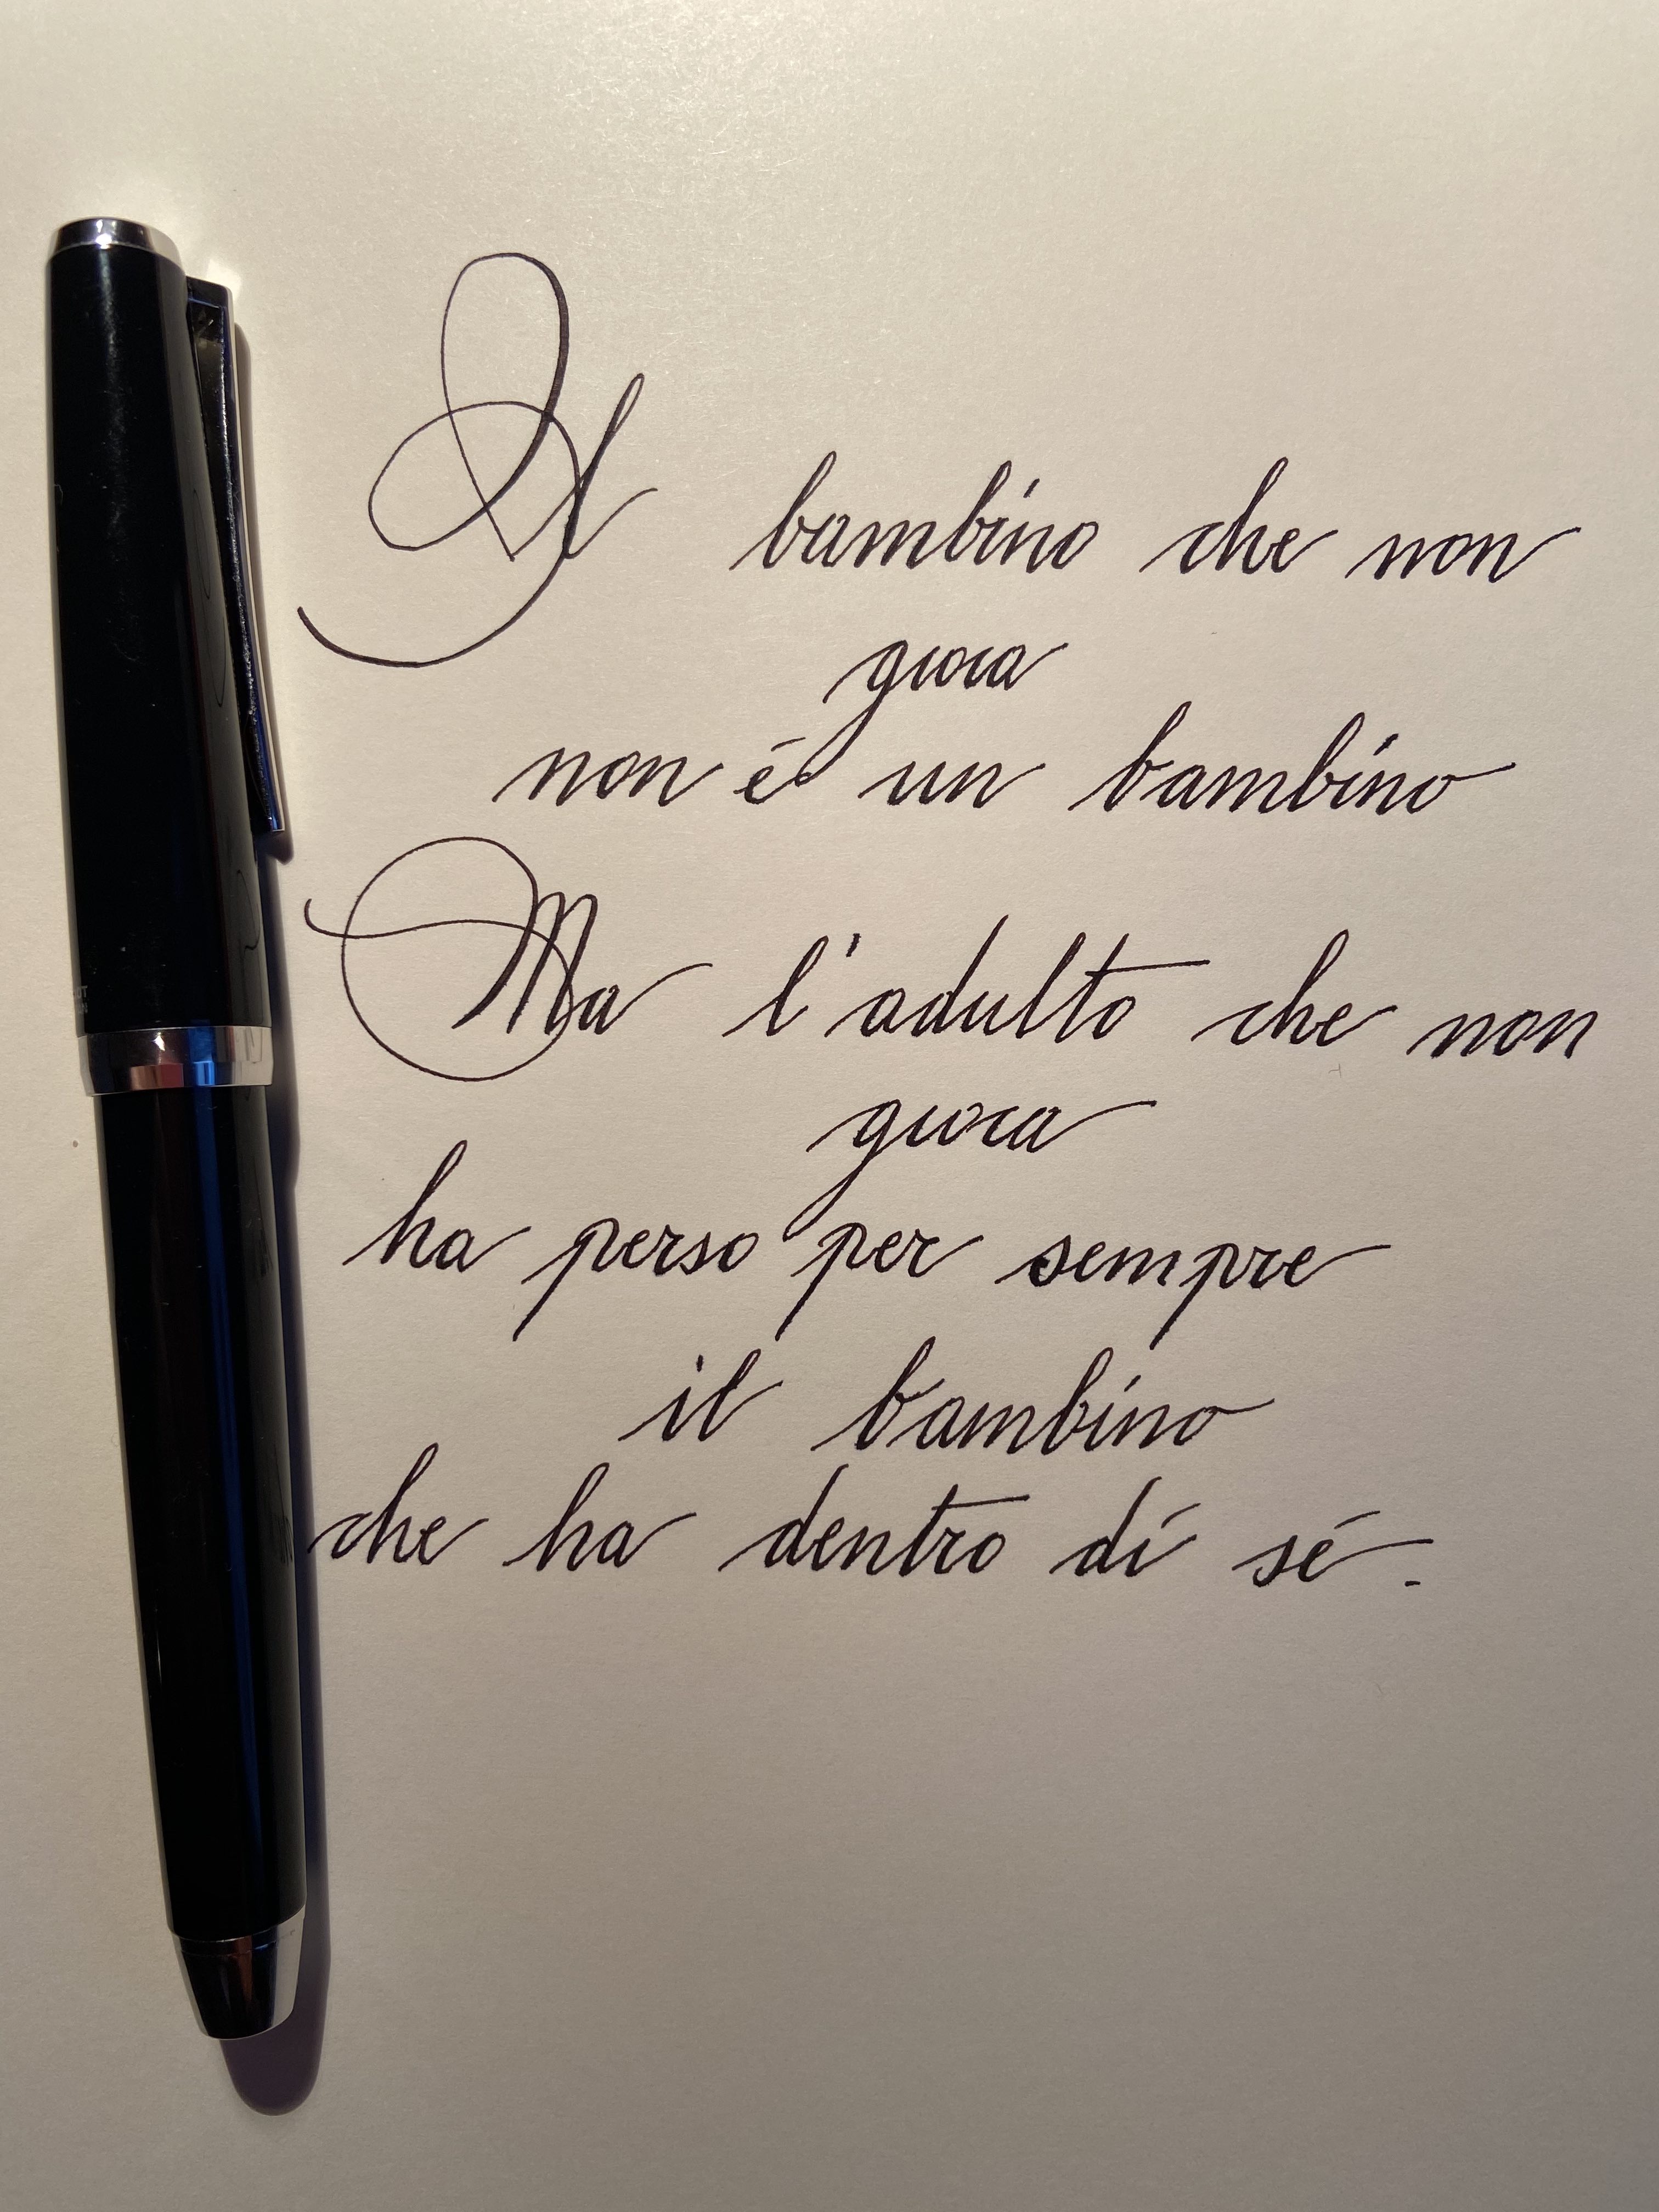 Il bambino che non
gioca
non é un bambino
Ma l'adulto che non
gioca
ha perso per sempre
il bambino
che ha dentro di sé.